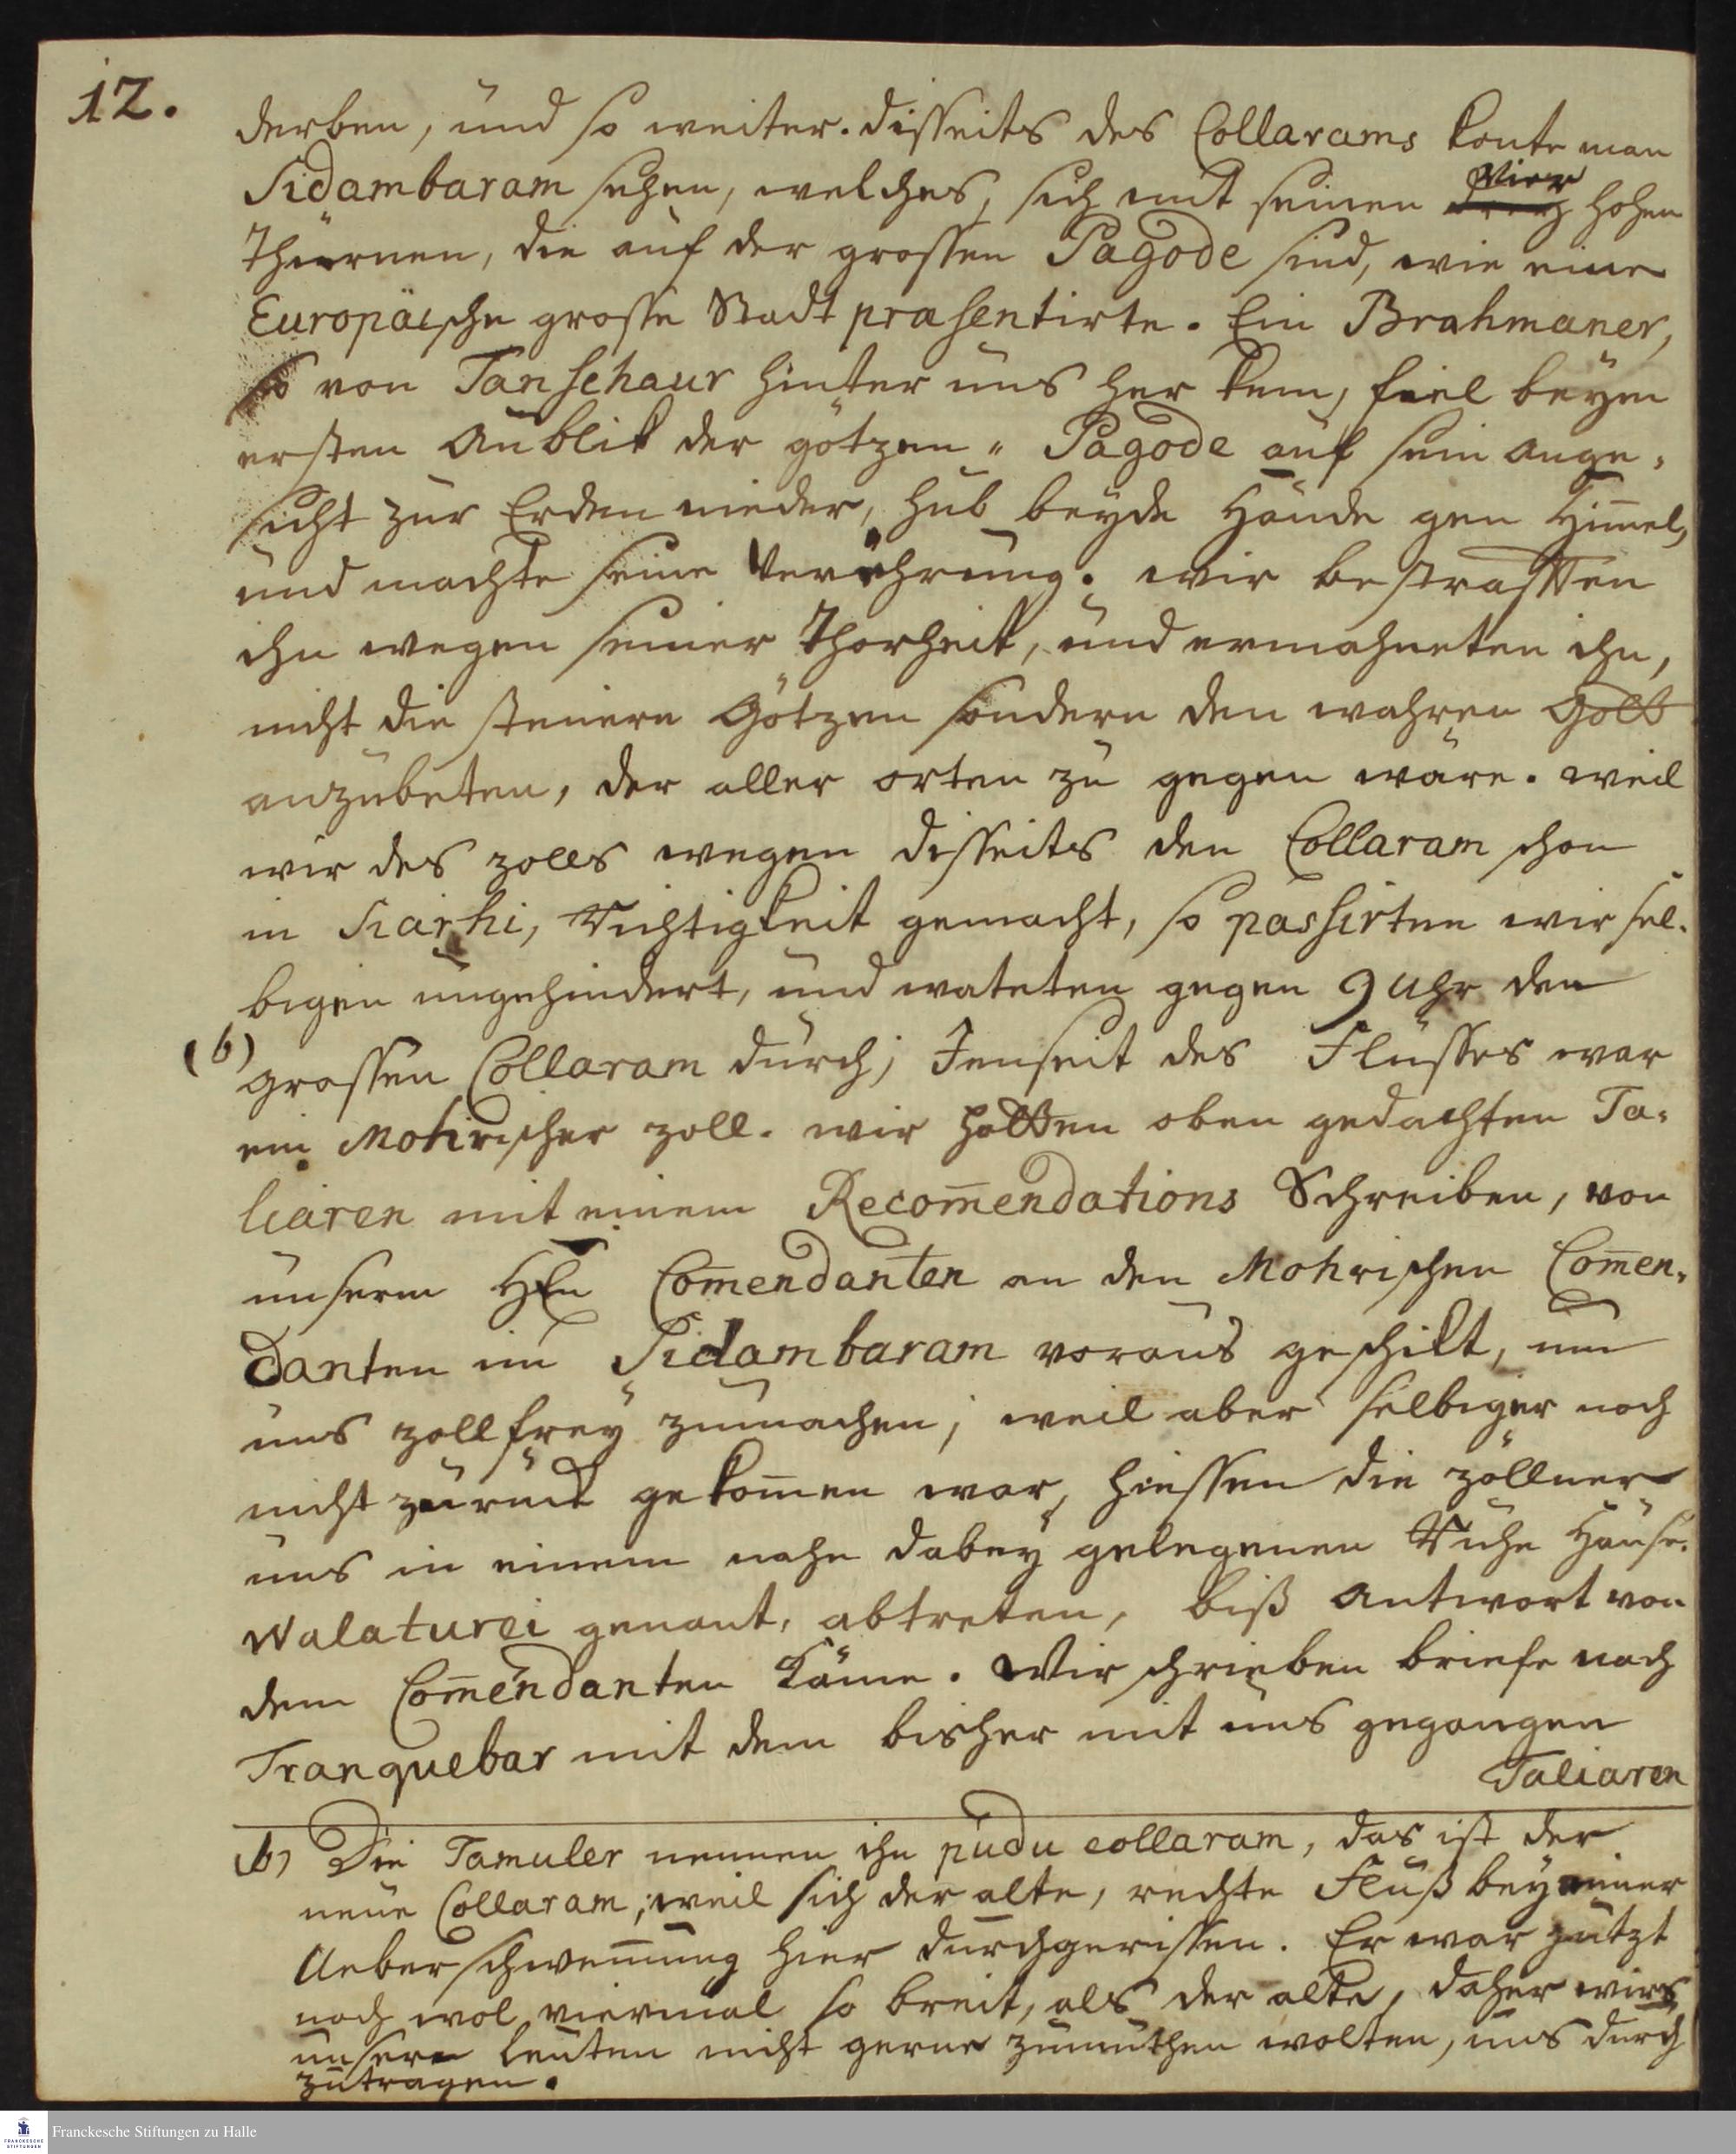 12.
derben, und so weiter. disseits des Collarams konte man
Sidambaram sehen, welches, sich mit seinen vier hohen
Thürnen, die auf der grossen Pagode sind, wie eine
Europäische grosse Stadt præsentirte. Ein Brahmaner,
so von Tanschaur hinter uns her kem, fiel beym
ersten Anblik der götzen-Pagode auf sein Ange-
sicht zur Erden nieder, hub beyde Hände gen Him̄el,
und machte seine Verehrung. wir bestrafften
ihn wegen seiner Thorheit, und ermahneten ihn,
nicht die steinern Götzen sondern den wahren Gott
anzubeten, der aller orten zu gegen wäre. weil
wir des zolls wegen disseits den Collaram schon
in Siarhi, Richtigkeit gemacht, so passirten wir sel-
bigen ungehindert, und wateten gegen 9 Uhr den
(b)
grossen Collaram durch; Jenseit des Flusses war
ein Mohrischer zoll. wir hatten oben gedachten Ta-
liaren mit einem Recom̄endations Schreiben, von
unserm HEn Com̄endanten an den Mohrischen Com̄en-
danten in Sidambaram voraus geschikt, um
uns zollfrey zumachen; weil aber selbiger noch
nicht zurück gekom̄en war, hiessen die zöllner
uns in einem nahe dabey gelegenen Ruhe Hause.
Walaturei genant, abtreten, biß Antwort von
dem Com̄endanten käme. Wir schrieben briefe nach
Tranquebar mit dem bisher mit uns gegangen
Taliaren
(b) Die Tamuler nennen ihn pudu collaram, das ist der
neue Collaram, weil sich der alte, rechte Fluß bey einer
Ueberschwem̄ung hier durchgerissen. Er war jetzt
noch wol viermal so breit, als der alte, daher wirs
unsern Leuten nicht gerne zumuthen wolten, uns durch
zutragen.
Franckesche Stiftungen zu Halle